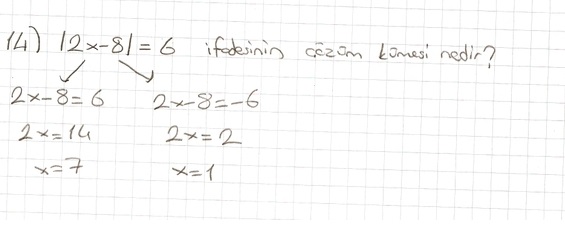 14) |2x-8| = 6 ifadesinin çözüm kümesi nedir?
2x-8=6 2x-8=-6
2x=14 2x=2
x=7 x=1